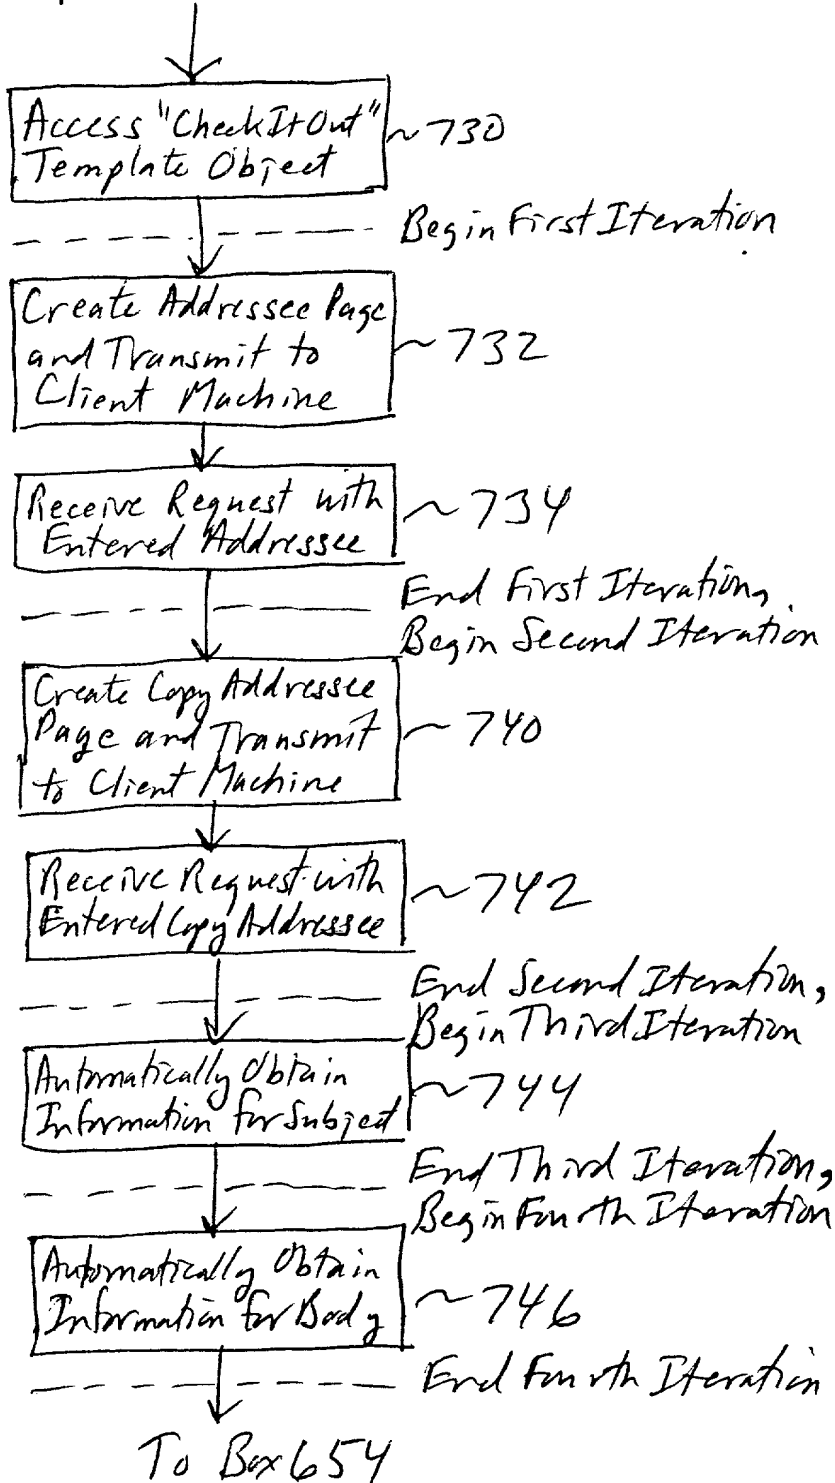 Access "CheckItOut"
Template Object
~730
Begin First Iteration
Create Addressee Page
and Transmit to
Client Machine
~732
Receive Request with
Entered Addressee
~734
End First Iteration,
Begin Second Iteration
Create Copy Addressee
Page and Transmit
to Client Machine
~740
Receive Request with
Entered Copy Addressee
~742
End Second Iteration,
Begin Third Iteration
Automatically Obtain
Information for Subject
~744
End Third Iteration,
Begin Fourth Iteration
Automatically Obtain
Information for Body
~746
End Fourth Iteration
To Box 654